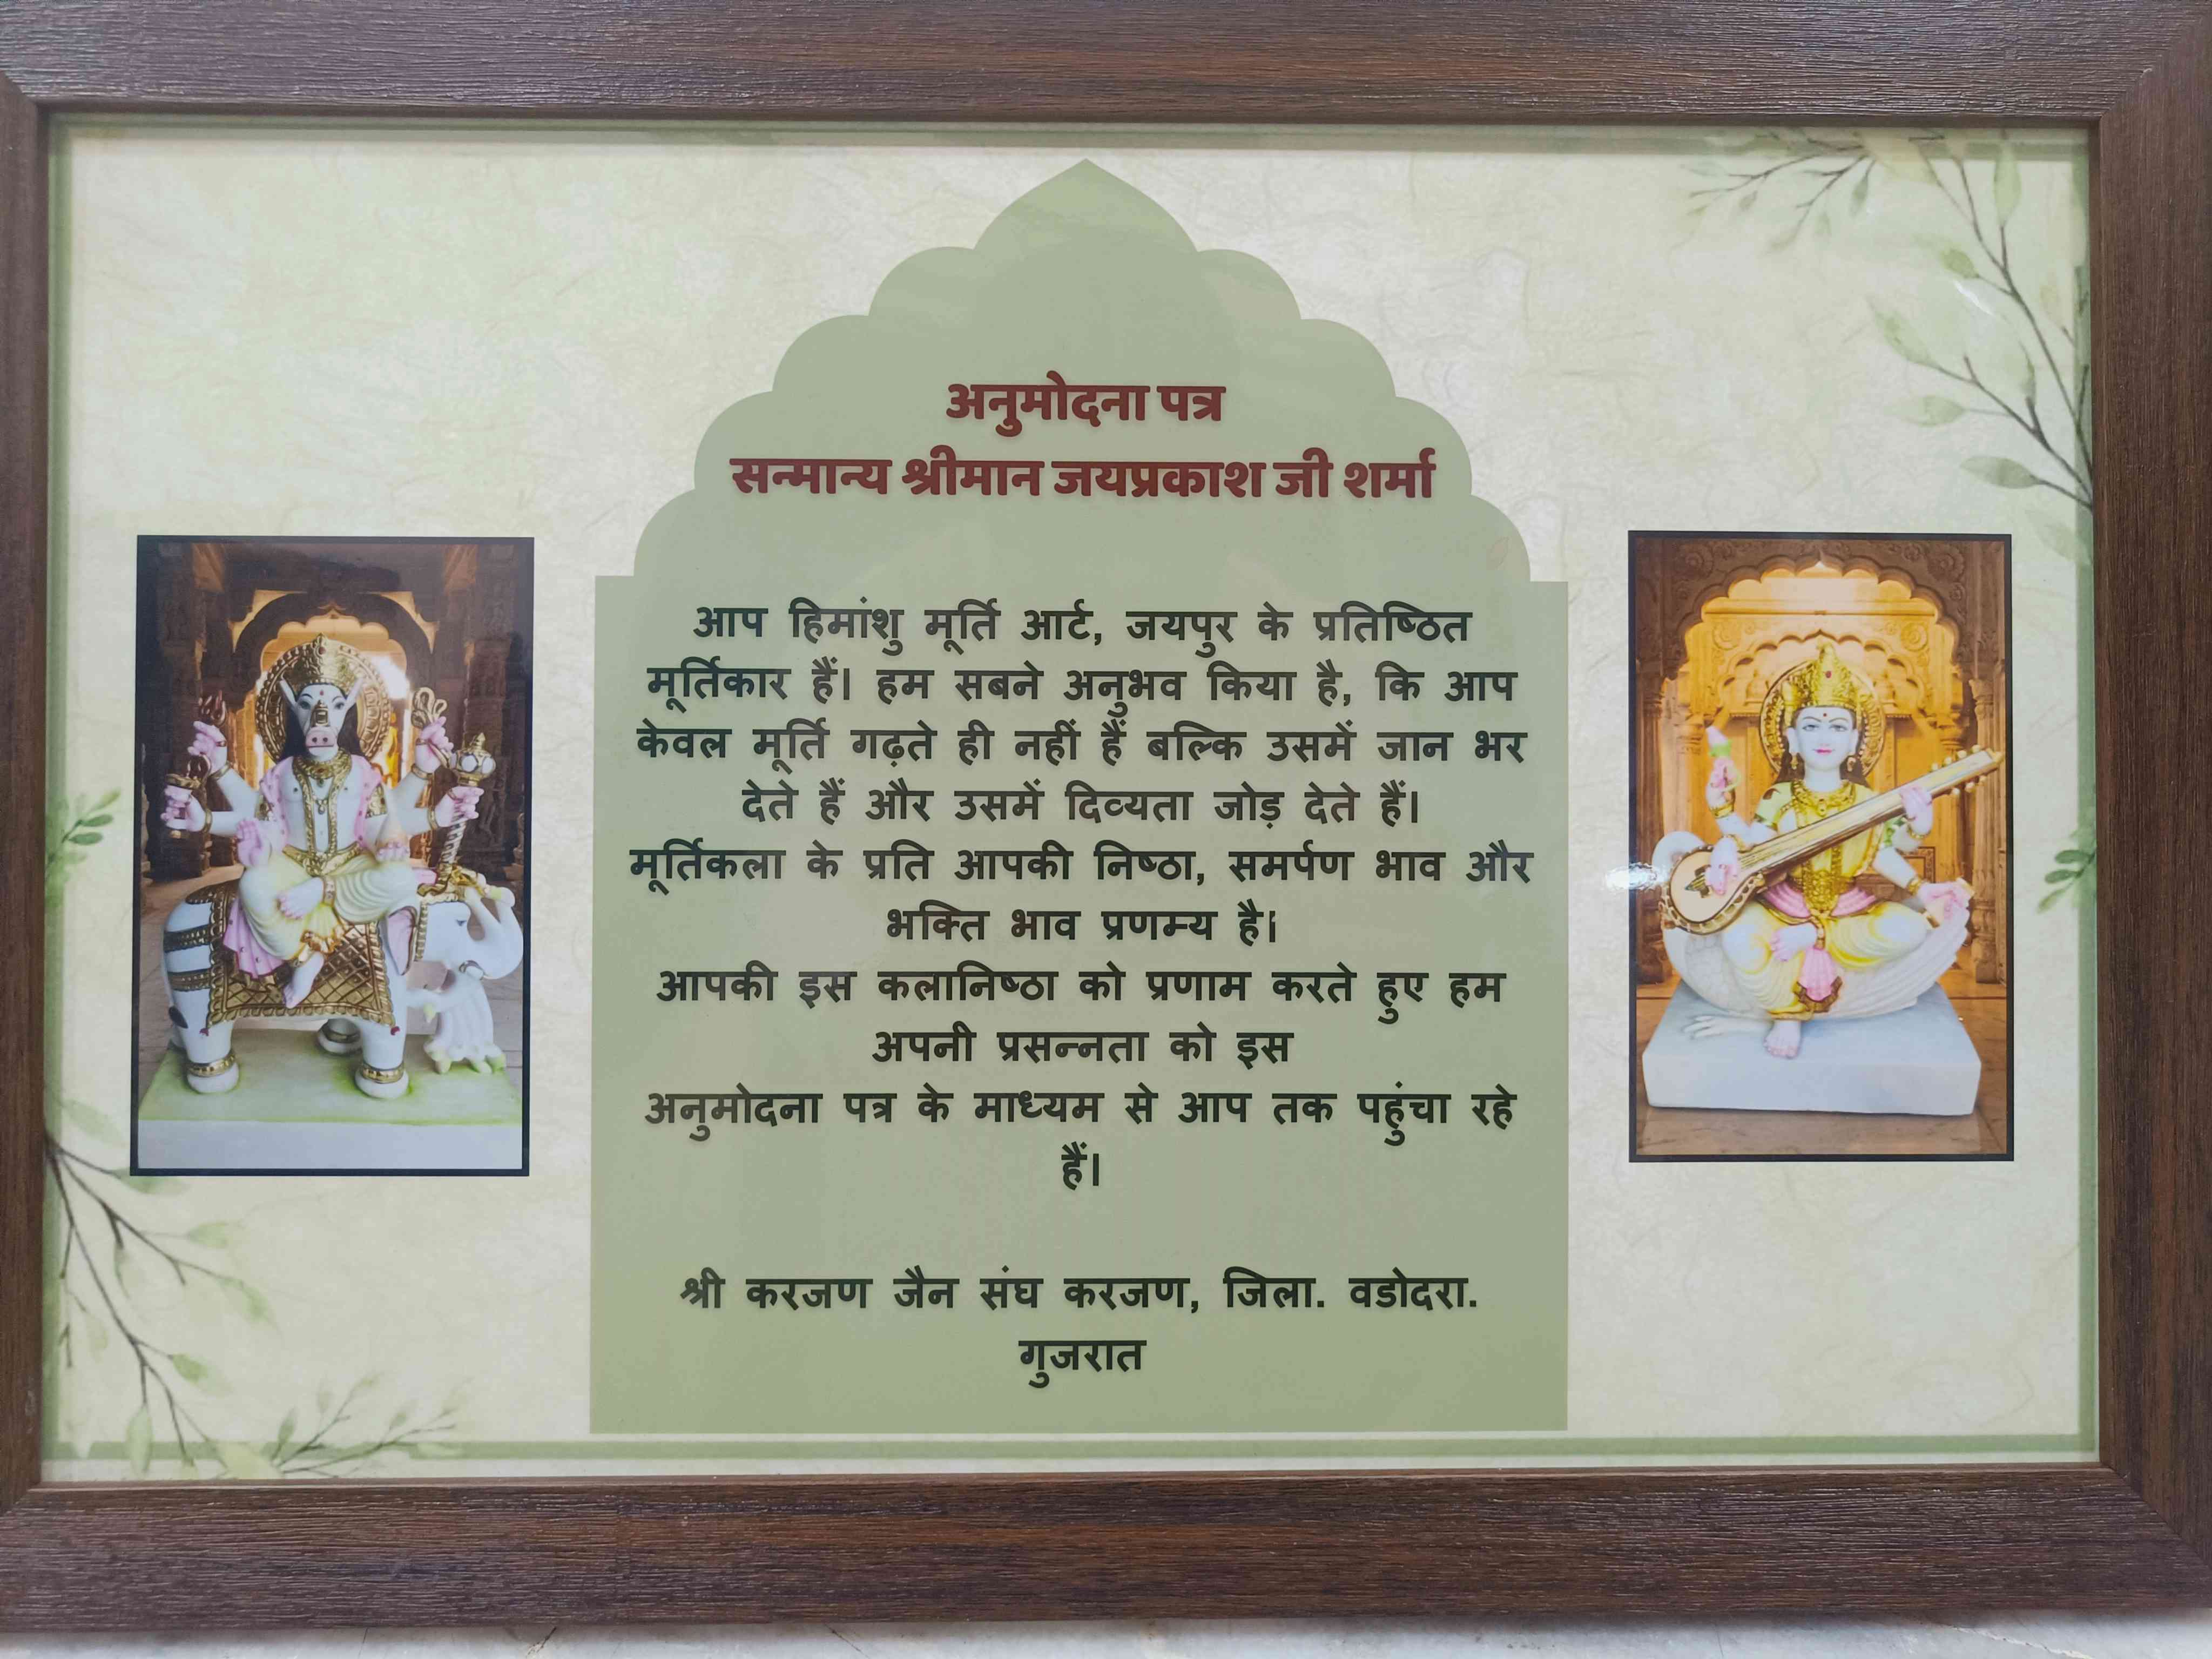 अनुमोदना पत्र
सन्मान्य श्रीमान जयप्रकाश जी शर्मा
आप हिमांशु मूर्ति आर्ट, जयपुर के प्रतिष्ठित
मूर्तिकार हैं। हम सबने अनुभव किया है, कि आप
केवल मूर्ति गढ़ते ही नहीं हैं बल्कि उसमें जान भर
देते हैं और उसमें दिव्यता जोड़ देते हैं।
मूर्तिकला के प्रति आपकी निष्ठा, समर्पण भाव और
भक्ति भाव प्रणम्य है।
आपकी इस कलानिष्ठा को प्रणाम करते हुए हम
अपनी प्रसन्नता को इस
अनुमोदना पत्र के माध्यम से आप तक पहुंचा रहे
हैं।
श्री करजण जैन संघ करजण, जिला. वडोदरा.
गुजरात